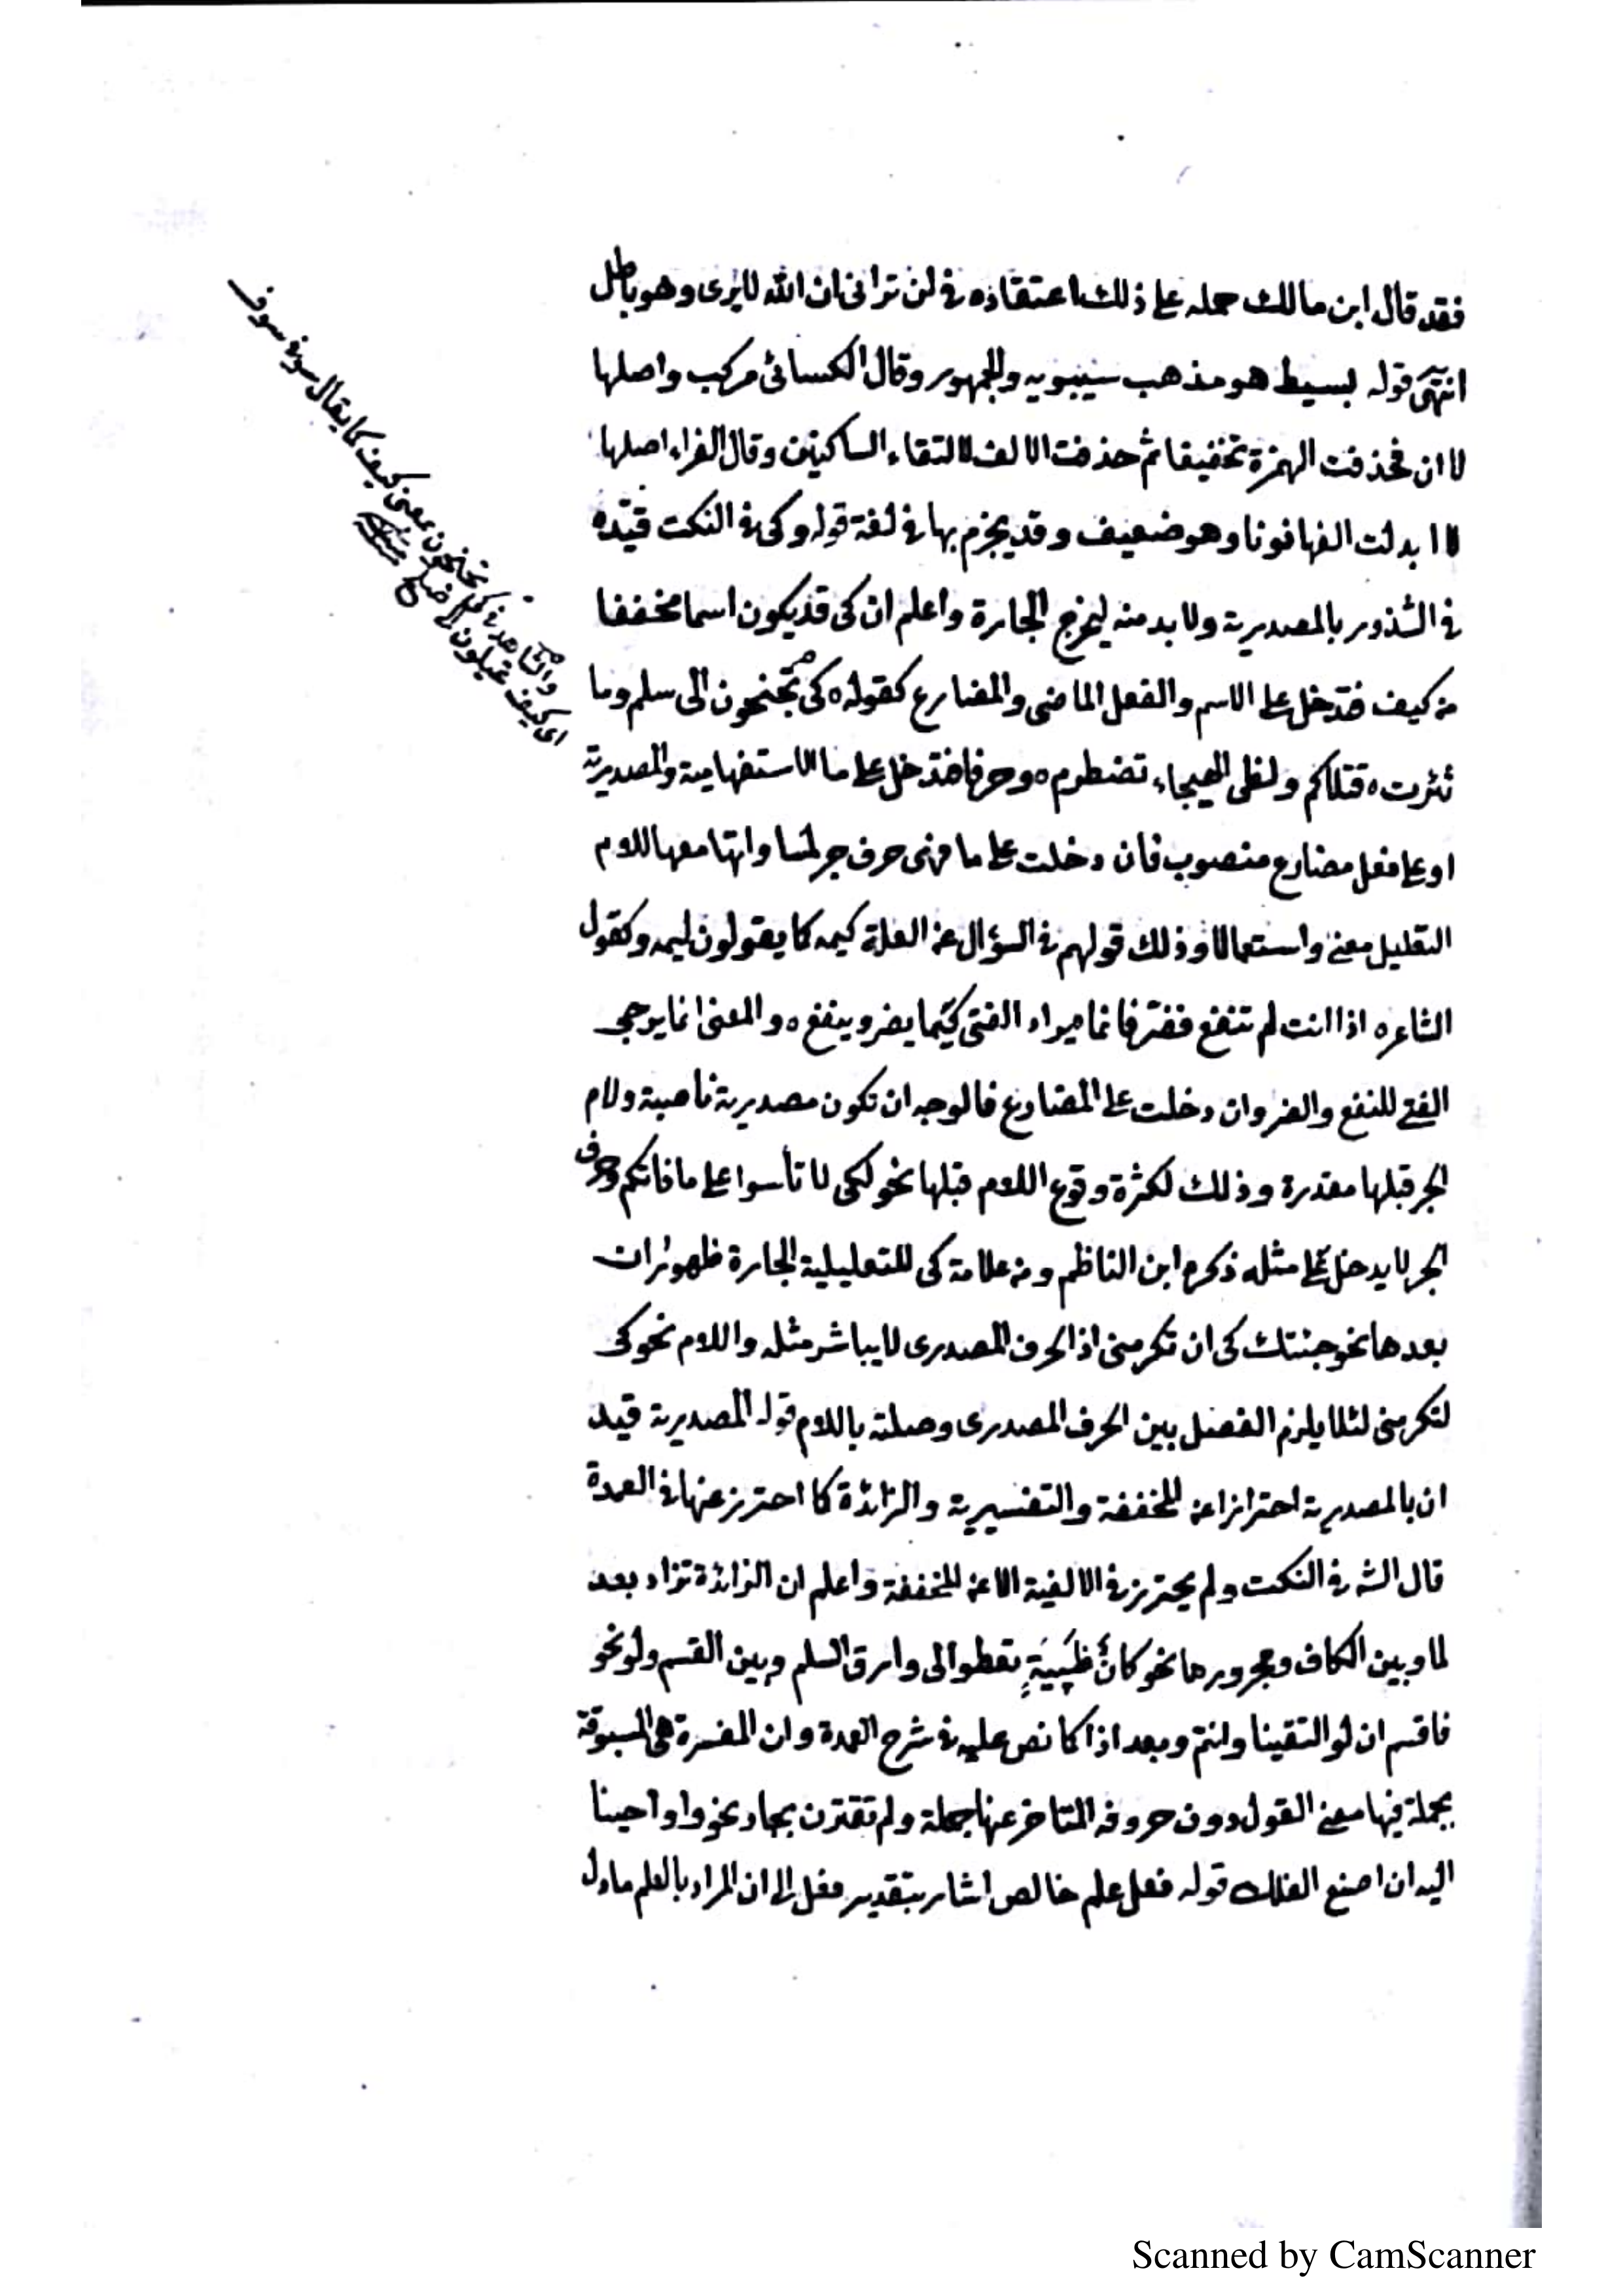 فقد قال ابن مالك حمله على ذلك اعتقاده في لن تراني ان الله لا يرى وهو باطل
انتهى قوله بسيط هو مذهب سيبويه والجمهور وقال الكسائي مركب واصلها
لا ان فحذفت الهمزة تخفيفا ثم حذفت الالف لالتقاء الساكنين وقال الفراء اصلها
لا ابدلت الفها نونا وهو ضعيف وقد يجزم بها في لغة قوله وكي في النكت قيّده
في الشذور بالمصدرية ولا بد منه ليخرج الجارة واعلم ان كي قد يكون اسما مخففا
من كيف فتدخل على الاسم والفعل الماضي والمضارع كقوله ه كي تجنحون الى سلم وما
ثئرت ه قتلاكم ولظى الهيجاء تضطرم ه وحرفا فتدخل على ما الاستفهامية والمصدرية
او على فعل مضارع منصوب فان دخلت على ما فهي حرف جر لمساواتها معها اللام
التعليل معنى واستعمالا وذلك قولهم في السؤال عن العلة كيمه كما يقولون ليمه وكقول
الشاعر ه اذا انت لم تنفع فضرّ فانما يراد الفتى كيما يضر وينفع ه والمعنى انما يرجى
الفتى للنفع والضر وان دخلت على المضارع فالوجه ان تكون مصدرية ناصبة ولام
الجر قبلها مقدرة وذلك لكثرة وقوع اللام قبلها نحو لكي لا تأسوا على ما فاتكم وحرف
الجر لا يدخل على مثله ذكره ابن الناظم ومن علامة كي للتعليلية الجارة ظهور ان
بعدها نحو جئتك كي ان تكرمني اذ الحرف المصدري لا يباشر مثله واللام نحو كي
لتكرمني لئلا يلزم الفصل بين الحرف المصدري وصلته باللام قوله المصدرية قيد
ان بالمصدرية احترازا عن المخففة والتفسيرية والزائدة كما احترز عنها في العمدة
قال الشـ في النكت ولم يحترز في الالفية الا عن المخففة واعلم ان الزائدة تزاد بعد
لما وبين الكاف ومجرورها نحو كأن ظَبيَةٍ تعطو الى وارق السلم وبين القسم ولو نحو
فاقسم ان لو التقينا وانتم وبعد اذا كما نص عليه في شرح العمدة وان المفسرة هي المسبوقة
بجملة فيها معنى القول دون حروفه المتاخر عنها جملة ولم تقترن بجار نحو واوحينا
اليه ان اصنع الفلك قوله فعل علم خالص اشار بتقدير فعل الى ان المراد بالعلم ما دل
والشاهد في كي تجنحون بمعنى كيف كما يقال سو في سوف
اي كيف تميلون الى صلح
Scanned by CamScanner